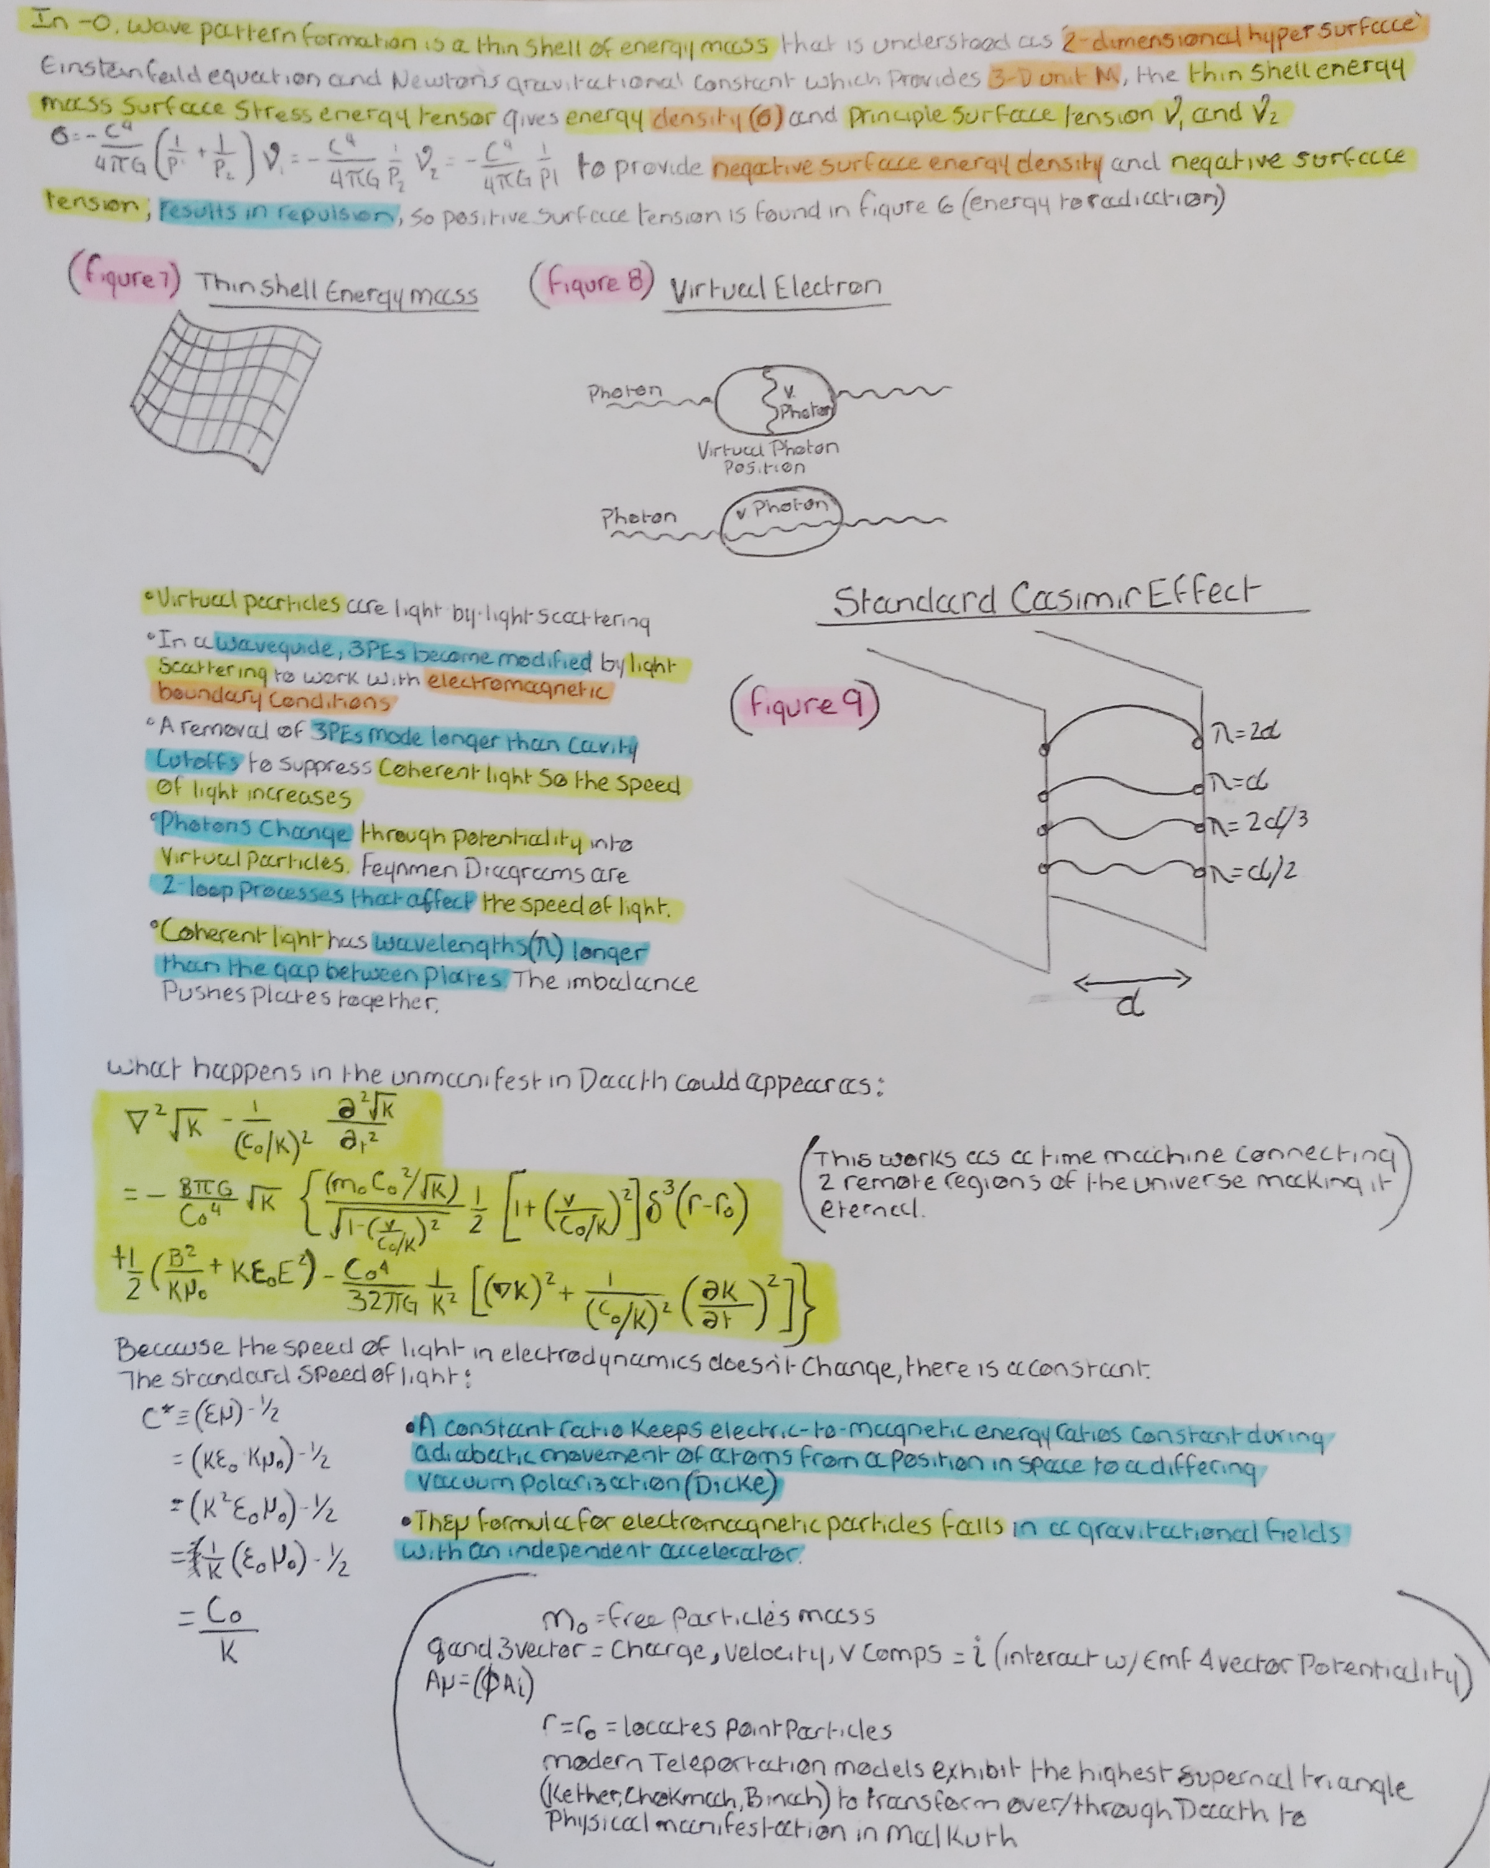 In -0, wave pattern formation is a thin shell of energy mass that is understood as '2-dimensional hyper surface'
Einstein feild equation and Newton's gravitational constant which provides 3-D unit M, the thin shell energy
mass surface stress energy tensor gives energy density (σ) and principle surface tension ϑ₁ and ϑ₂
σ = -c⁴/4πG (1/P₁ + 1/P₂) ϑ₁ = -c⁴/4πG 1/P₂ ϑ₂ = -c⁴/4πG 1/P1 to provide negative surface energy density and negative surface
tension, results in repulsion, so positive surface tension is found in figure 6 (energy to radiation)
(figure 7) Thin Shell Energy mass
(figure 8) Virtual Electron
Photon
V. Photon
Virtual Photon
Position
Photon
V Photon
• Virtual particles are light by-light scattering
• In a waveguide, 3PEs become modified by light
scattering to work with electromagnetic
boundary conditions
• A removal of 3PEs mode longer than cavity
cutoffs to suppress coherent light so the speed
of light increases
• Photons change through potentiality into
virtual particles. Feynmen Diagrams are
2-loop processes that affect the speed of light.
• Coherent light has wavelengths (π) longer
than the gap between plates. The imbalance
pushes plates together.
Standard Casimir Effect
(figure 9)
π=2d
π=d
π=2d/3
π=d/2
d
What happens in the unmanifest in Daath could appear as:
∇²√K - 1/(C₀/K)² ∂²√K/∂t²
= - 8πG/C₀⁴ √K { (m₀C₀²/√K)/√1-(v/C₀/K)² 1/2 [1+(v/C₀/K)²] δ³(r-r₀)
+1/2 (B²/Kμ₀ + Kε₀E²) - C₀⁴/32πG 1/K² [(∇K)² + 1/(C₀/K)² (∂K/∂t)²]}
(This works as a time machine connecting
2 remote regions of the universe making it
eternal.)
Because the speed of light in electrodynamics doesn't change, there is a constant.
The standard speed of light:
C* ≡ (εμ) -½
= (Kε₀·Kμ₀) -½
= (K²ε₀μ₀) -½
= 1/K (ε₀μ₀) -½
= C₀/K
• A constant ratio keeps electric-to-magnetic energy raties constant during
adiabatic movement of atoms from a position in space to a differing
vacuum polarization (Dicke)
• THEμ formula for electromagnetic particles falls in a gravitational fields
with an independent accelerator.
m₀ = free particles mass
q and 3vector = charge, velocity, v comps = i (interact w/ Emf 4 vector Potentiality)
Aμ=(ϕAi)
r=r₀ = locates point particles
modern Teleportation models exhibit the highest supernal triangle
(Kether, Chokmah, Binah) to transform over/through Daath to
physical manifestation in Malkuth